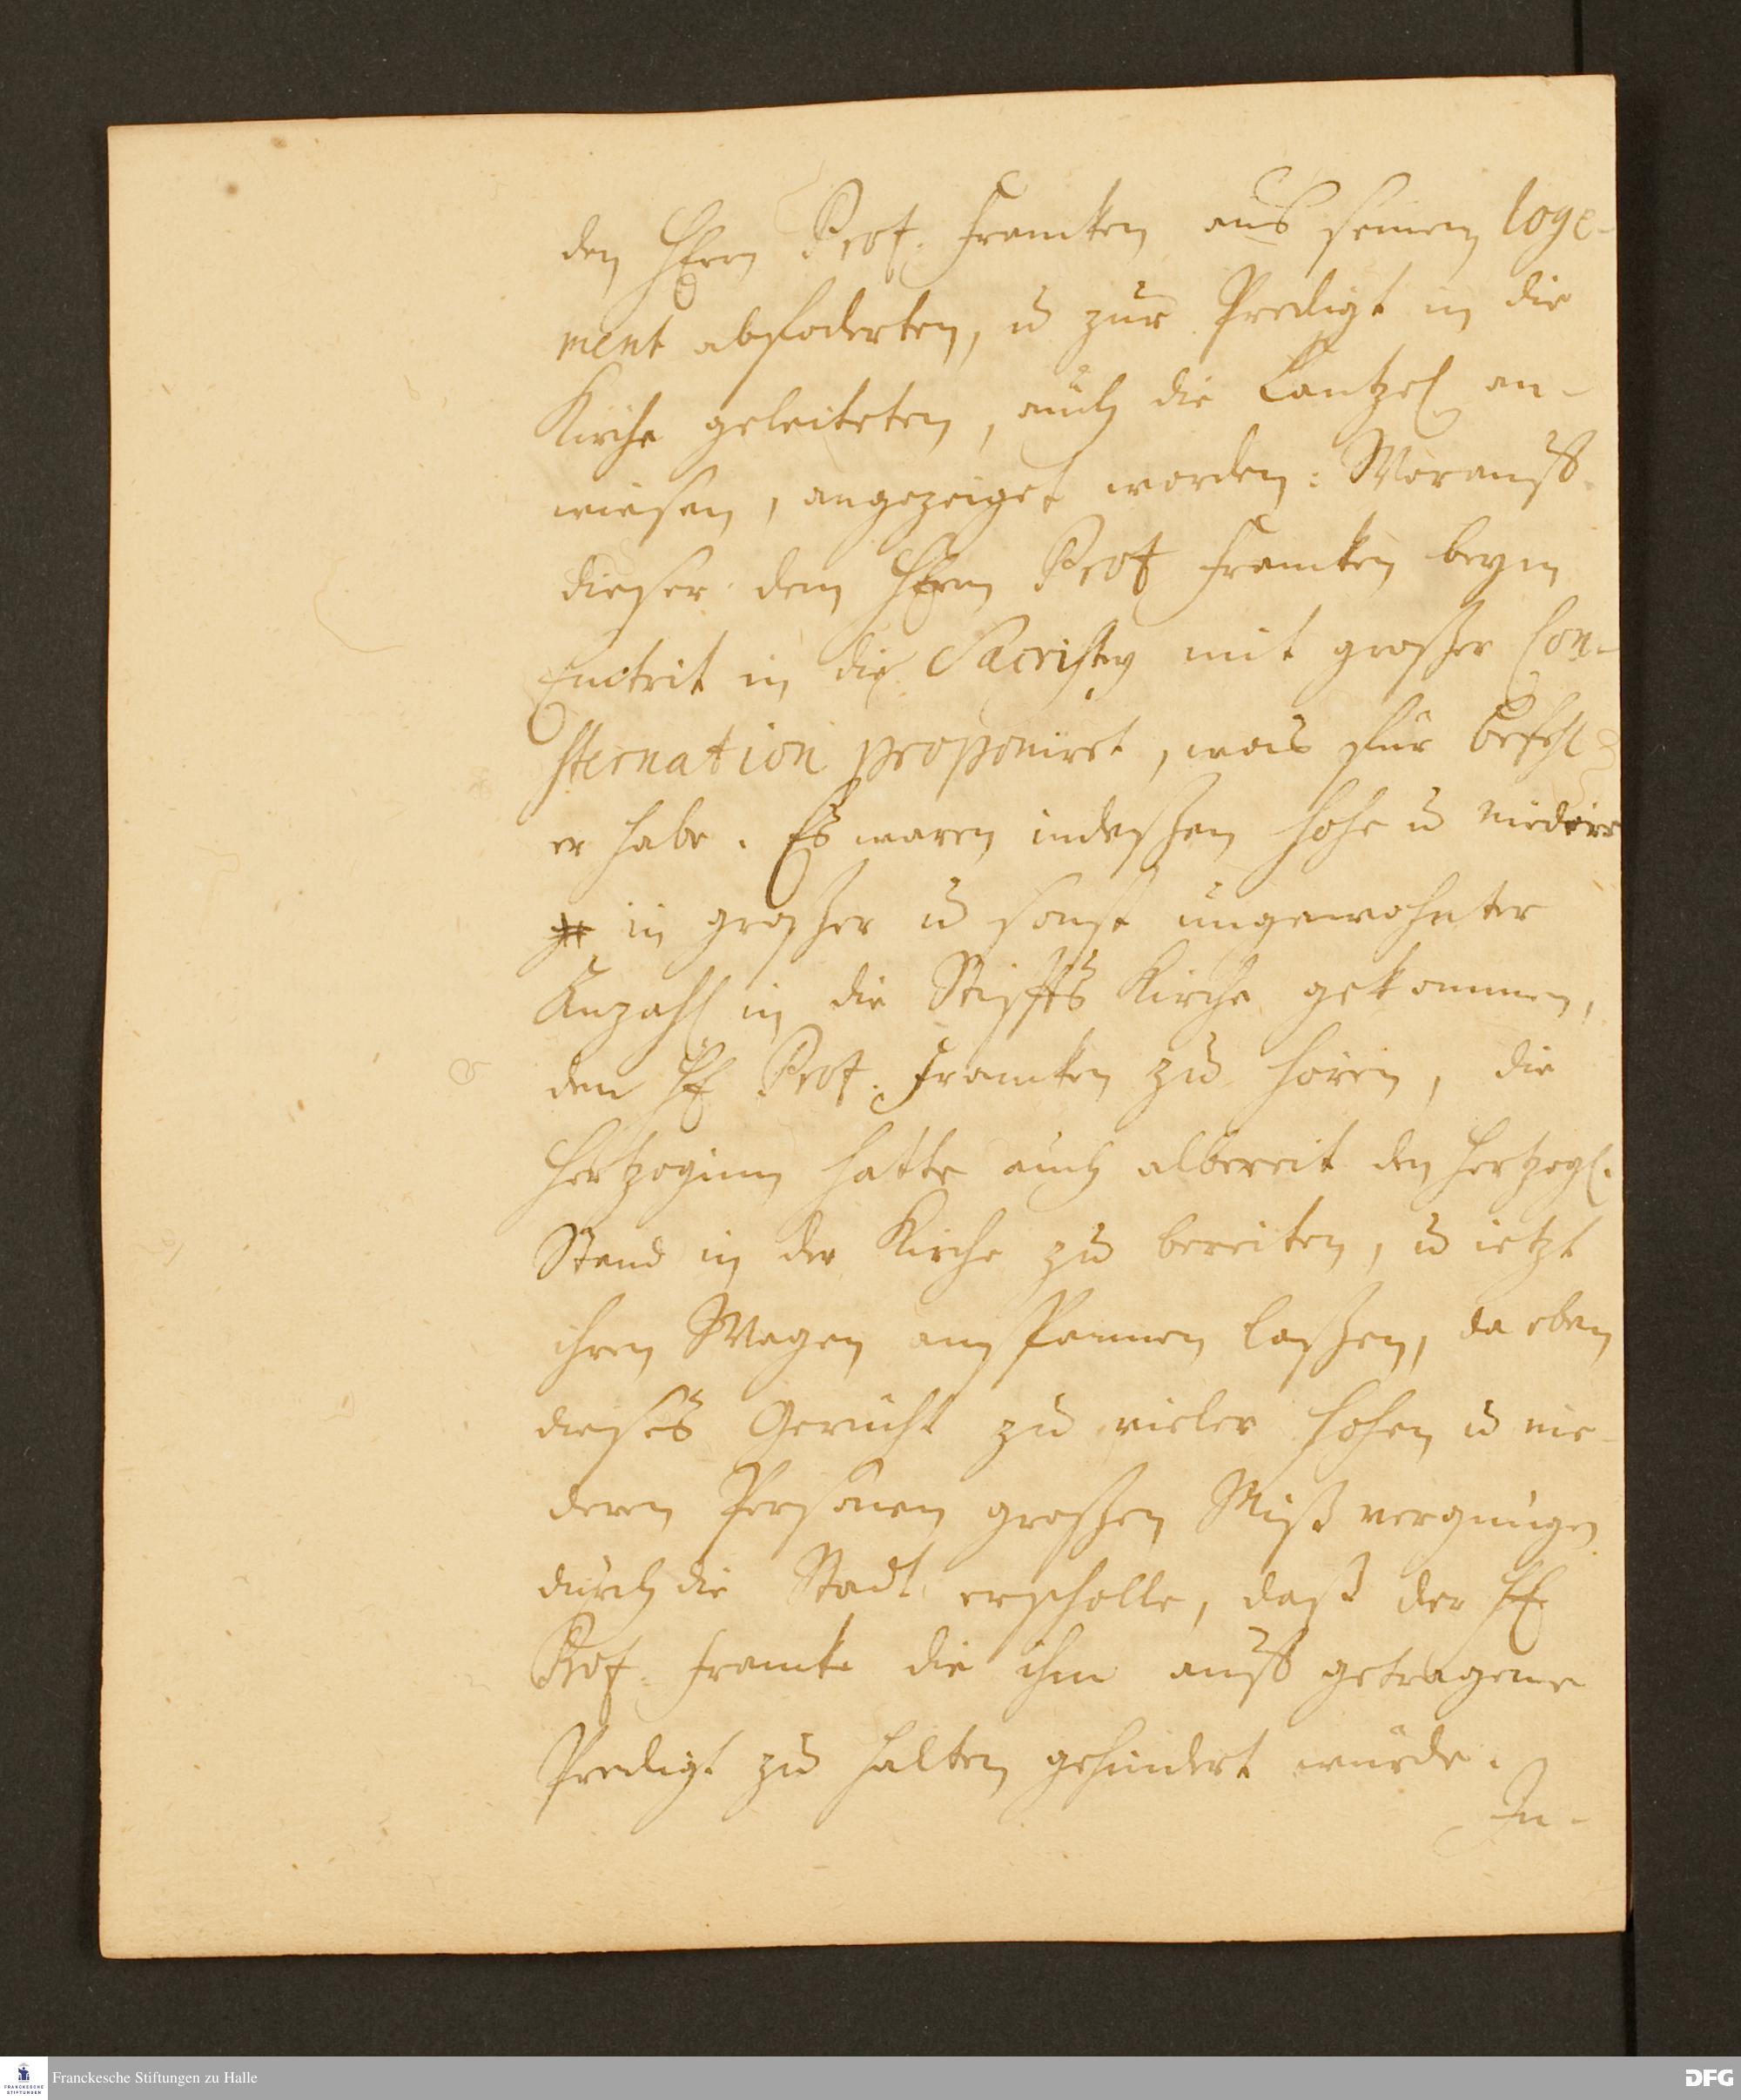 den Herrn Prof. Francken aus seinem loge-
ment abfoderten, u zur Predigt in die
Kirche geleiteten, auch die Cantzel an-
wiesen, angezeiget worden: Worauff
dieser dem Herrn Prof Francken beym
Eintrit in die Sacristey mit großer Con-
sternation proponiret, was für Befehl
er habe. Es waren indeßen hohe u niedere
in großer u sonst ungewohnter
Anzahl in die Stiffts Kirche gekommen,
den H Prof. Francken zu hören, die
Hertzoginn hatte auch albereit den Hertzogl.
Stand in der Kirche zu bereiten, u ietzt
ihren Wagen anspannen laßen, da eben
dieses Gerücht zu vieler hohen u nie-
deren Personen großen Mißvergnügen
durch die Stadt erscholle, daß der H
Prof. Francke die ihm auffgetragene
Predigt zu halten gehindert würde.
In-
Franckesche Stiftungen zu Halle
FRANCKESCHE STIFTUNGEN
DFG